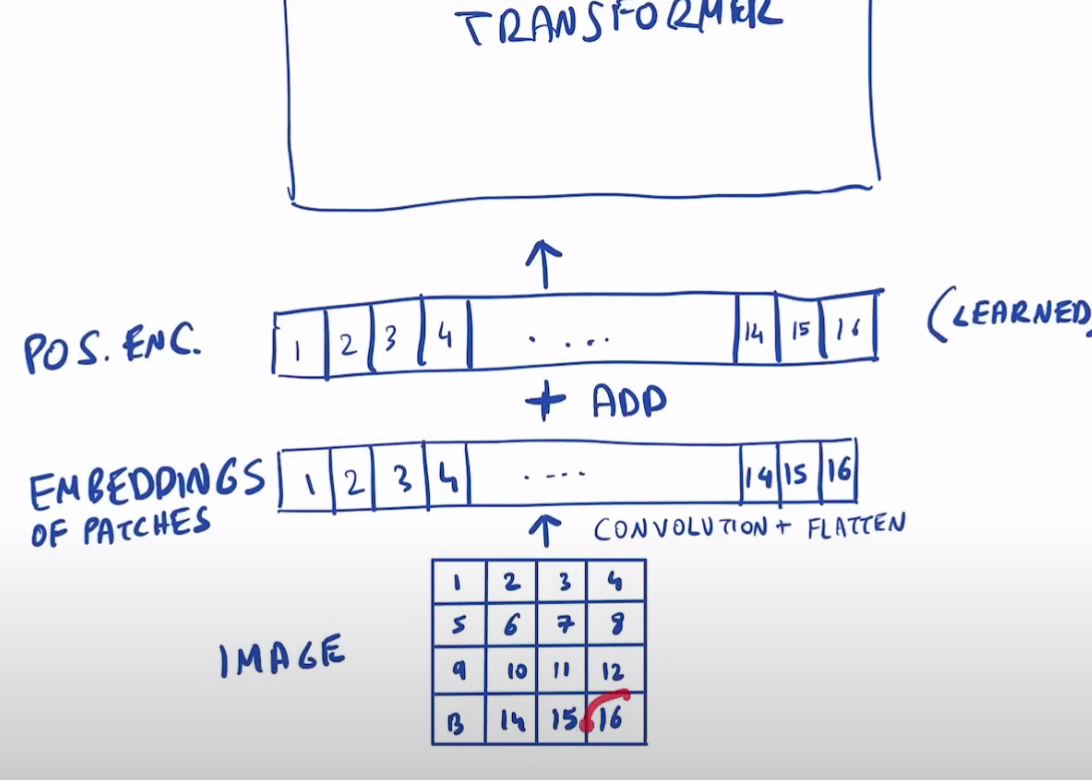 TRANSFORMER
POS. ENC. 1 2 3 4 . ... 14 15 16 (LEARNED)
+ ADD
EMBEDDINGS OF PATCHES 1 2 3 4 .... 14 15 16
CONVOLUTION + FLATTEN
IMAGE
1 2 3 4
5 6 7 8
9 10 11 12
13 14 15 16